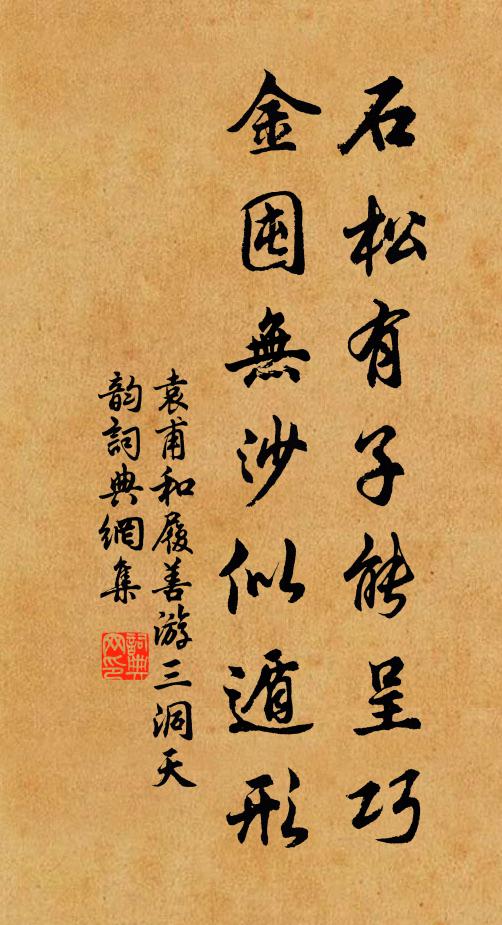 石松有子能呈巧
金囤無沙似遁形
袁甫和履善游三洞天
韵詞典網集
詞典
网印